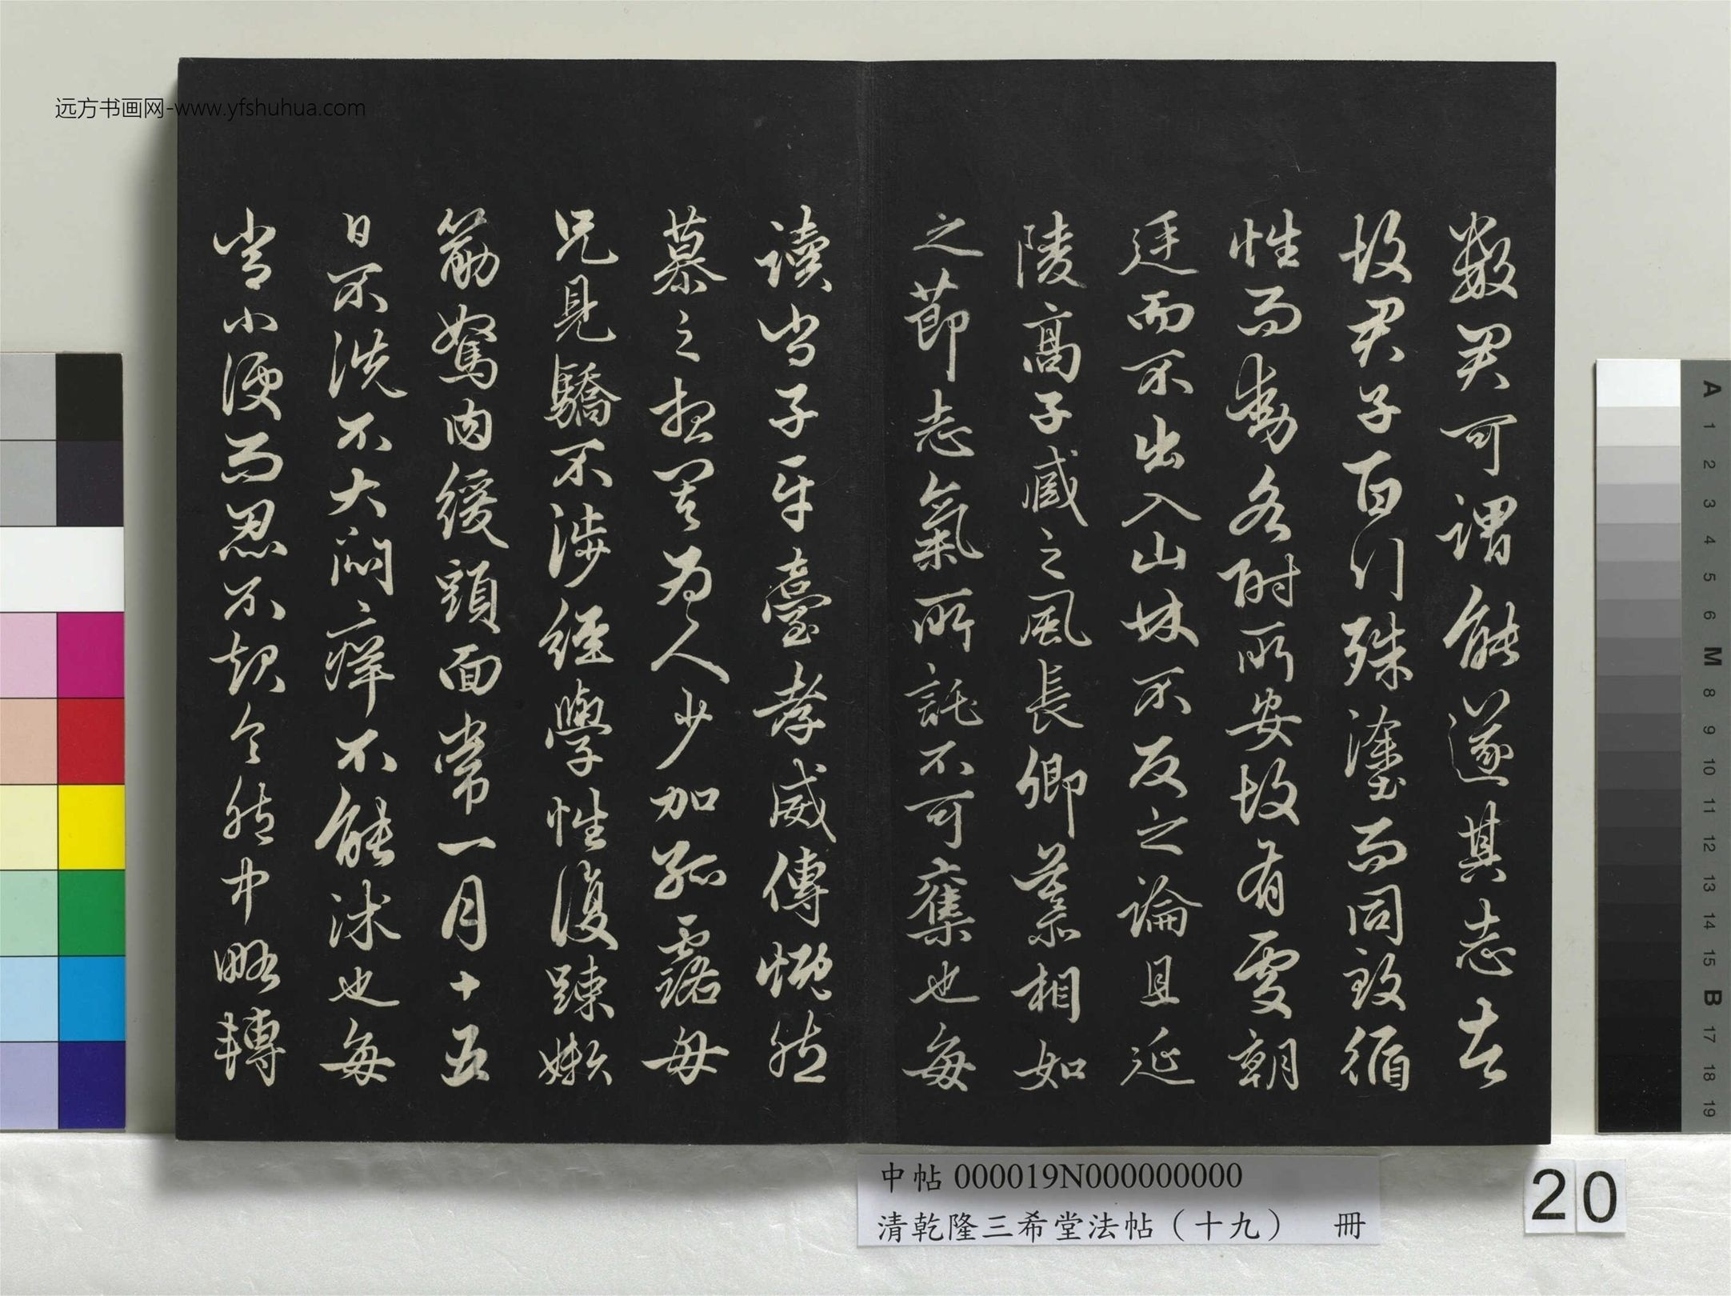 远方书画网-www.yfshuhua.com
數君可謂能遂其志者
故君子百行殊塗而同致循
性而動各附所安故有處朝
廷而不出入山林不反之論且延
陵高子臧之風長卿慕相如
之節志氣所託不可奪也每
讀尚子平臺孝威傳慨然
慕之想其為人少加孤露母
兄見驕不涉經學性復踈嬾
筋駑肉緩頭面常一月十五
日不洗不大悶癢不能沐也每
當小便而忍不起令胞中略轉
中帖 000019N000000000
清乾隆三希堂法帖（十九） 冊
20
A 1 2 3 4 5 6 M 8 9 10 11 12 13 14 15 B 17 18 19